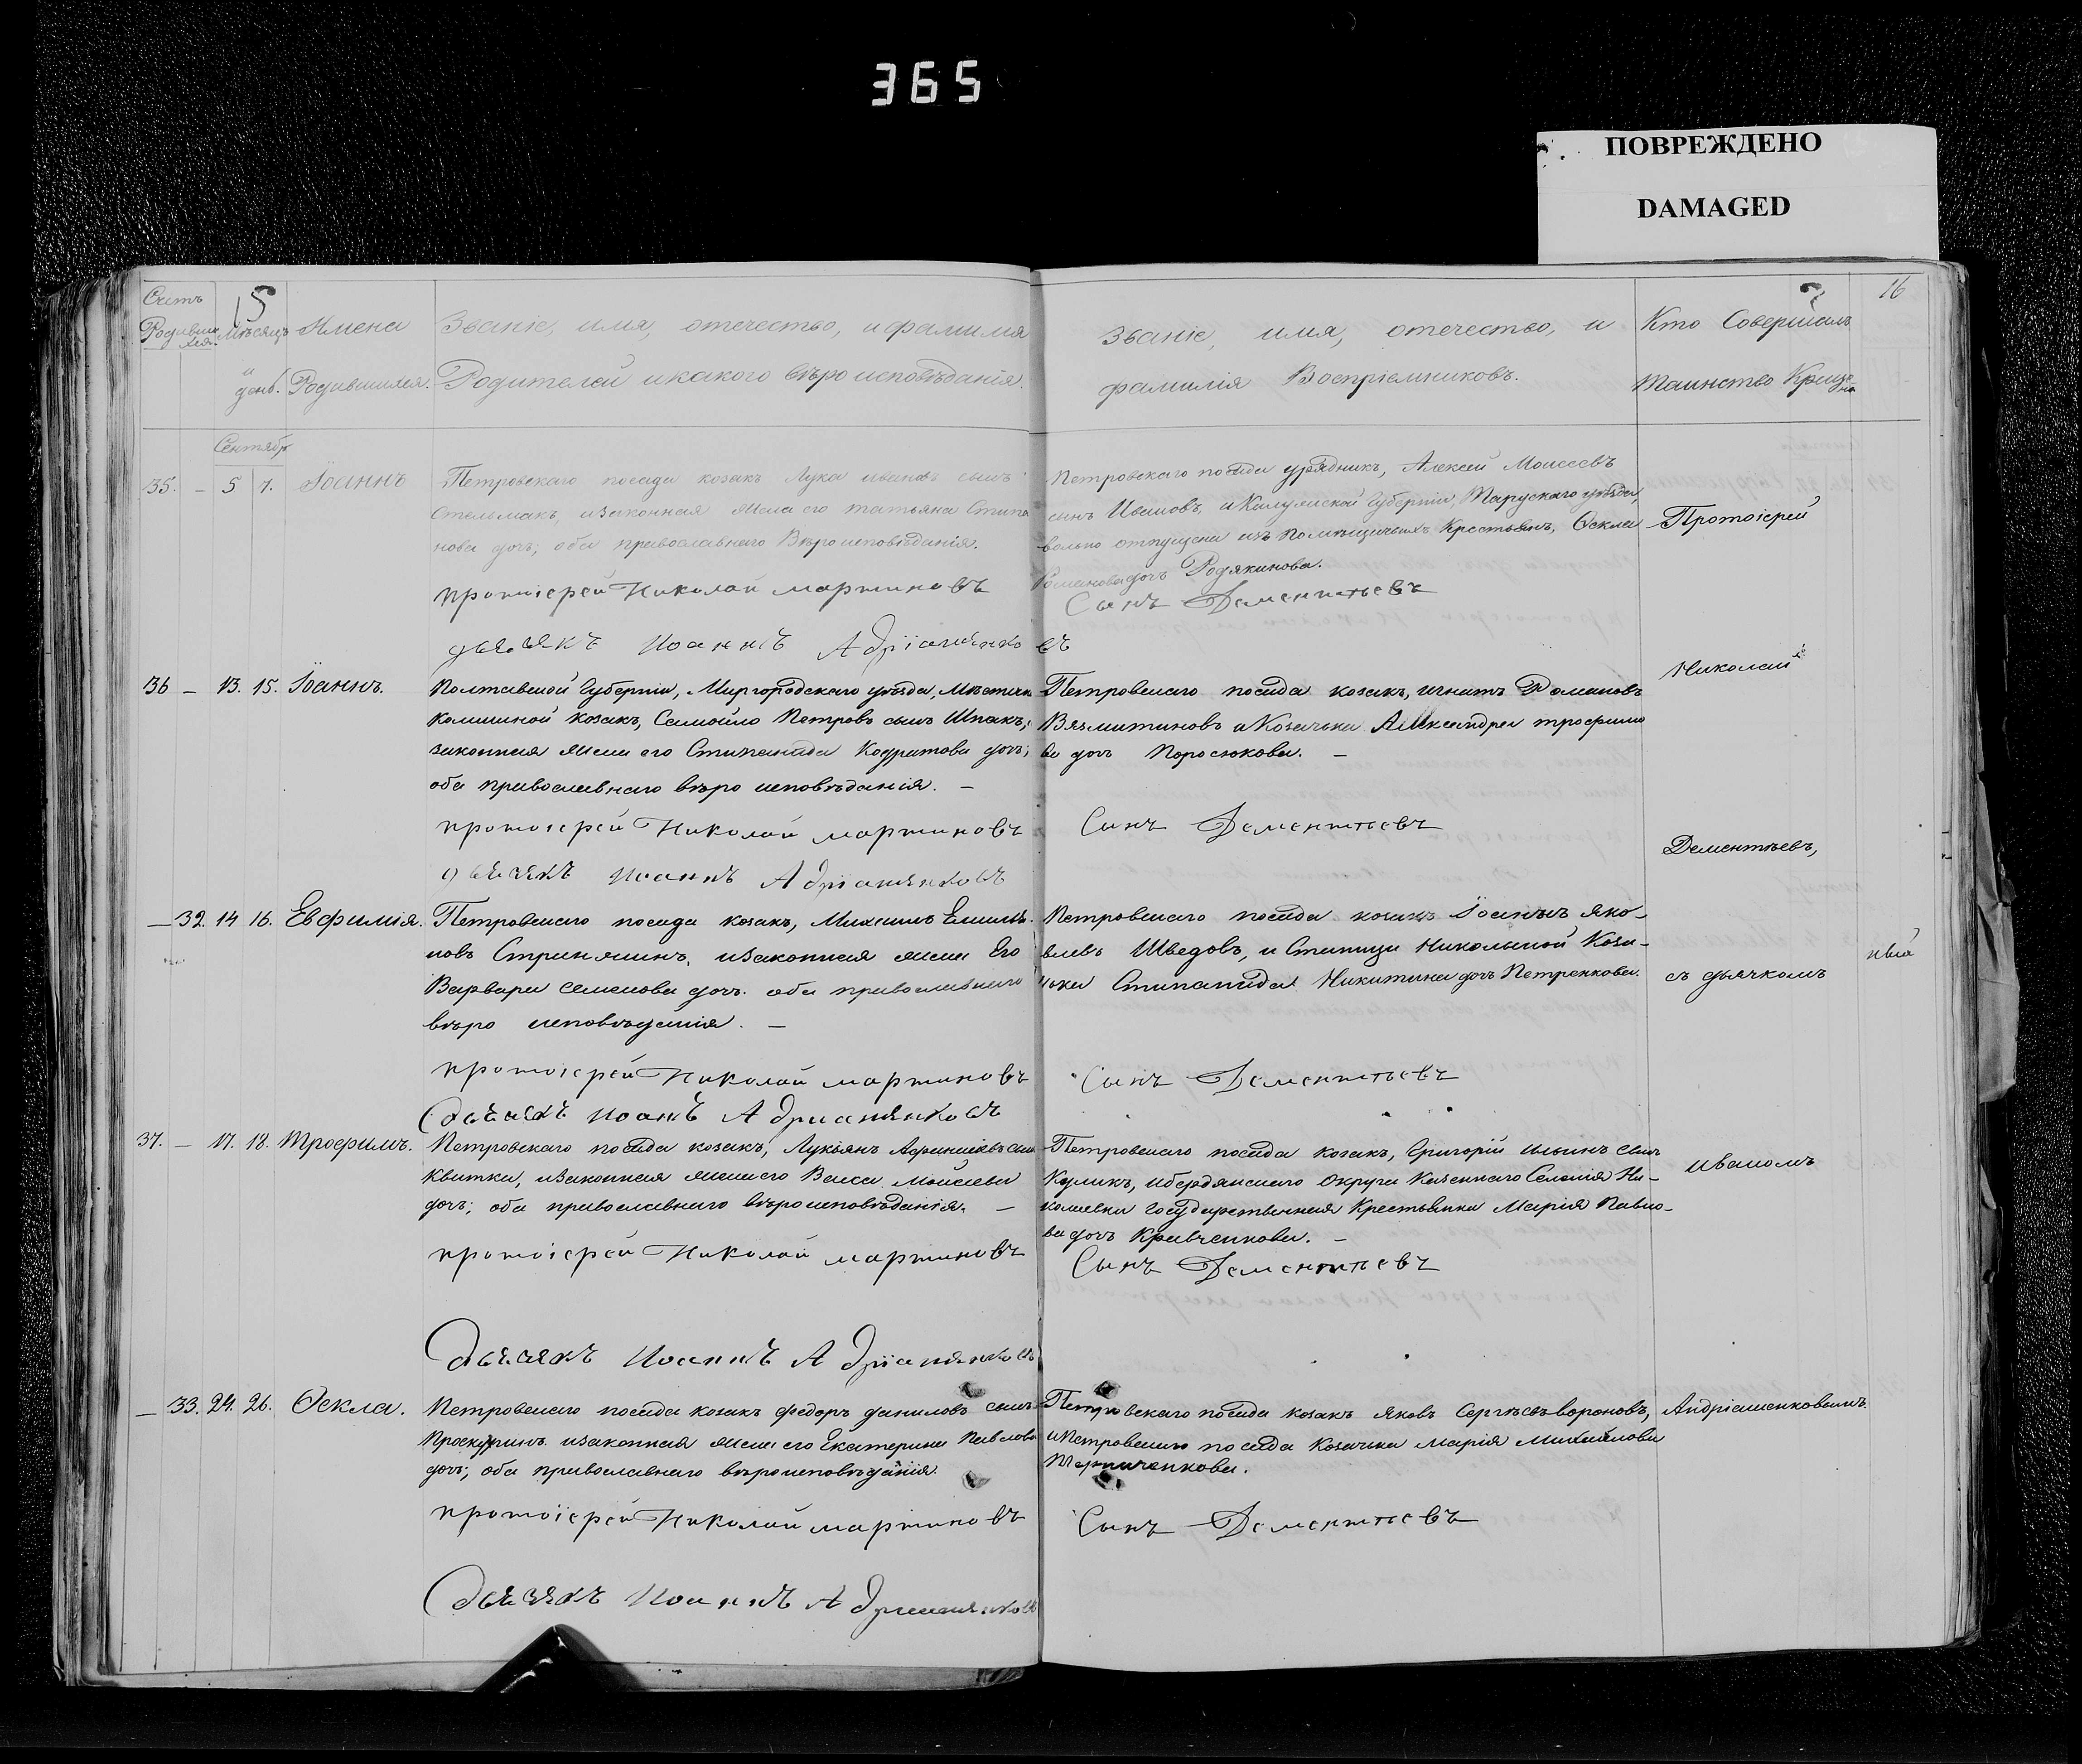 365
ПОВРЕЖДЕНО
DAMAGED
Счетъ
15
Родивших
ся.
Мѣсяцъ
и
день.
Имена
Родившихся.
Званіе, имя, отечество, и фамилия
Родителей и какого вѣро исповѣданія.
Сентябрь
35. – 5 7. Іоаннъ
Петровскаго посада козакъ Лука ивановъ сынъ
Стельмахъ, и законная жена его татьяна Степа
нова дочь; оба православнаго Вѣроисповѣданія.
протоіерей Николай мартиновъ
дьячокъ Иоаннъ
36 – 13. 15. Іоаннъ.
Полтавской Губерніи, Миргородскаго уѣзда, Мѣстечка
Комишной козакъ, Самойло Петровъ сынъ Шпакъ,
законная жена его Степанида Кодратова дочь;
оба православнаго вѣро исповѣданія. –
протоіерей Николай мартиновъ
дьячокъ Иоаннъ
– 32. 14 16. Евфимія.
Петровскаго посада козакъ, Михаилъ
новъ и законная жена Его
Варвара Семенова дочь. оба православнаго
вѣро исповѣданія. –
протоіерей Николай мартиновъ
37. – 17. 18. Трофимъ.
Петровскаго посада козакъ, Лукьянъ сынъ
Квитка, и законная жена его Васса Моисеева
дочь; оба православнаго вѣроисповѣданія. –
протоіерей Николай мартиновъ
дьячокъ Иоаннъ
– 33. 24. 26. Ѳекла.
Петровскаго посада козакъ федоръ даниловъ сынъ
Проскуринъ и законная жена его Екатерина Павлова
дочь; оба православнаго вѣроисповѣданія.
протоіерей Николай мартиновъ
дьячокъ Иоаннъ
16
Званіе, имя, отечество, и
фамилія Воспріемниковъ.
Кто Совершалъ
таинство Креще
Петровскаго посада урядникъ, Алексей Моисеевъ
сынъ Ивановъ, и Калужской Губерніи, Тарускаго уѣзда,
вольно отпущена изъ помѣщичьихъ Крестьянъ, Ѳекла
Романова дочь Родякинова.
Сынъ Дементьевъ
Петровскаго посада козакъ, игнатъ Романовъ
Вязмитиновъ и Козачька Александра трофимо
ва дочь Поросюкова. –
Сынъ Дементьевъ
Петровскаго посада козакъ Іоаннъ Яко–
влевъ Шведовъ, и Станици Никольской Коза–
чька Степанида Никитина дочь Петренкова.
Сынъ Дементьевъ
Петровскаго посада козакъ, Григорій Ильинъ сынъ
Куликъ, и бердянскаго округа Казеннаго Селенія Ни–
колаевки Государственная Крестьянка Марія Павло–
ва дочь Кравченкова. –
Сынъ Дементьевъ
Петровскаго посада козакъ Яковъ Сергѣевъ вороновъ,
и Петровскаго посада Козачька Марія Михайлова
Сынъ Дементьевъ
Протоіерей
Николай
Дементьевъ,
съ дьячкомъ
иваномъ
Андріяшенковымъ.